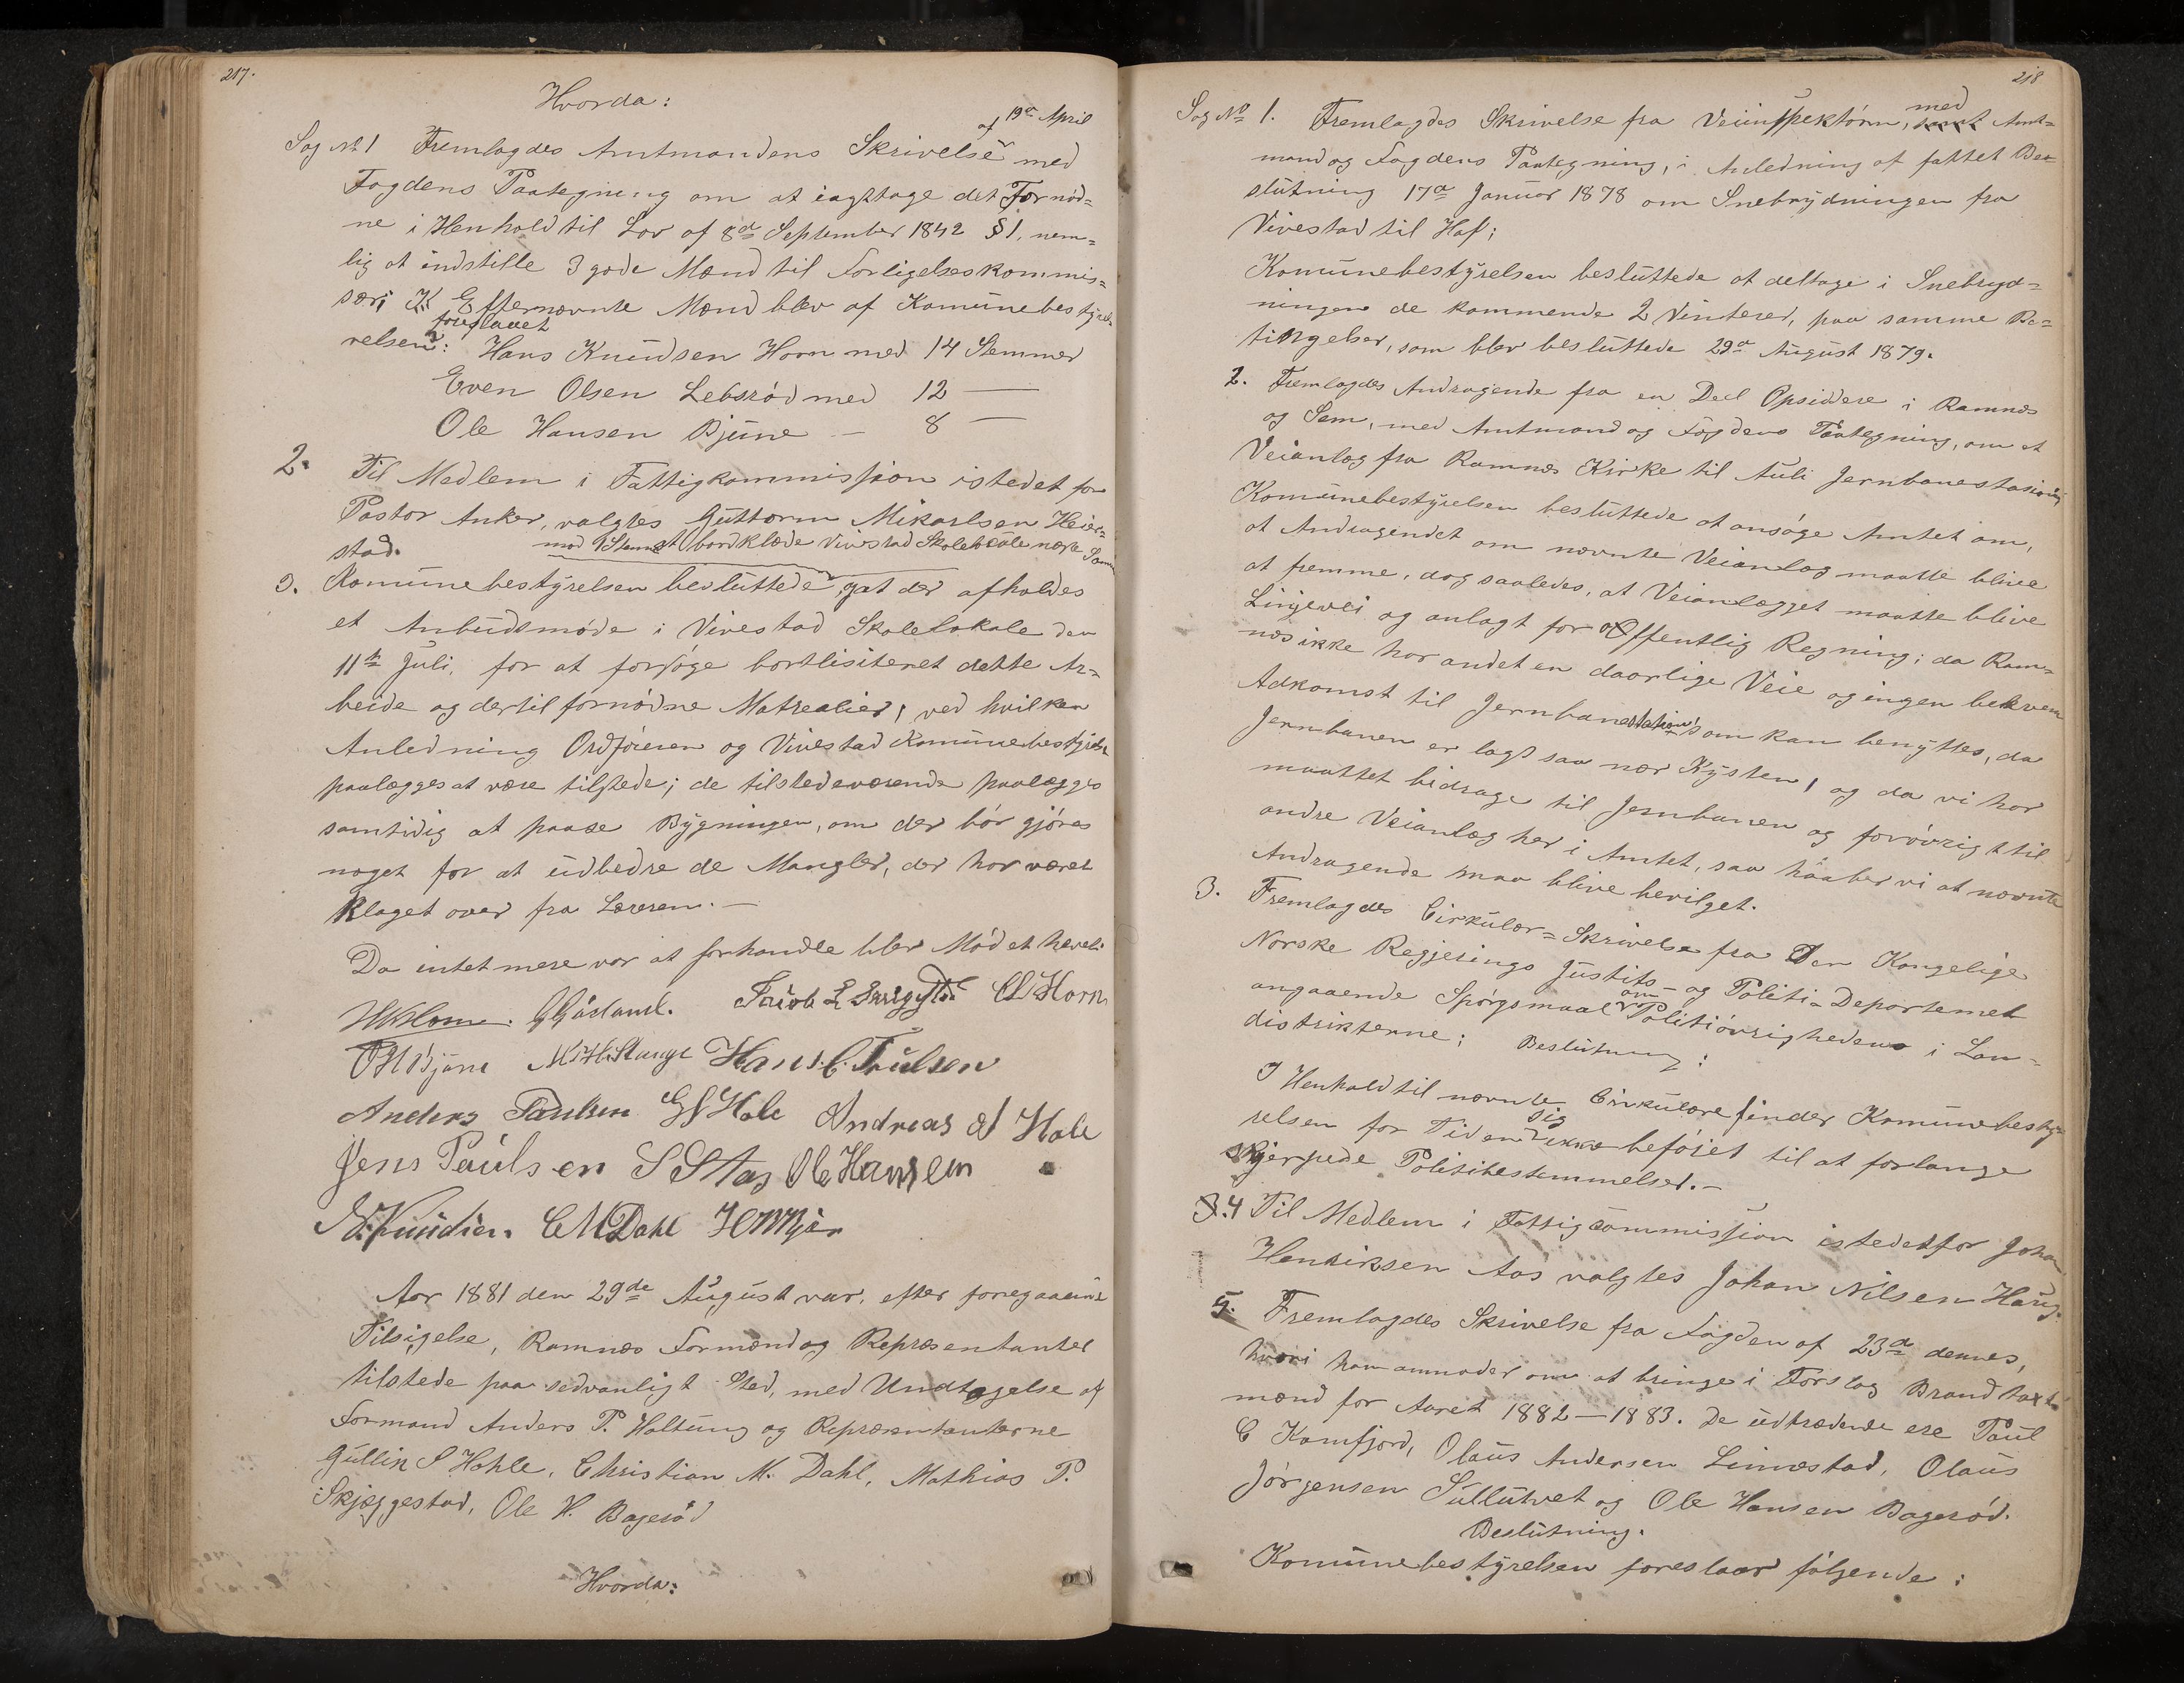 217.
Hvorda:
af 19de April
Sag No 1 Fremlagdes Amtmandens Skrivelse med
Fogdens Paategning om at iagttage det Fornød=
ne i Henhold til Lov af 8de September 1842 § 1, nem=
lig at indstille 3 gode Mænd til Forligelseskommis=
sær; Efternævnte Mænd blev af Komunebestyrel=
foreslaaet
relsen: Hans Knudsen Horn med 14 Stemmer
Even Olsen Lebsrød med 12 —
Ole Hansen Bjune — 8 —
2. Til Medlem i Fattigkommission istedet for
Pastor Anker, valgtes Guttorm Mikaelsen Heier=
stad.
at bordklæde Vivestad Skolelokale næste Som
3. Komunebestyrelsen besluttede, at der afholdes
et Anbudsmøde i Vivestad Skolelokale den
11te Juli, for at forsøge bortlisiteret dette Ar=
beide og dertil fornødne Matrealier, ved hvilken
Anledning Ordføreren og Vivestad Komunebestyrelse
paalægges at være tilstede; de tilstedeværende paalægges
samtidig at paase Bygningen, om der bør gjøres
noget for at udbedre de Mangler, der har været
klaget over fra Læreren. —
Da intet mere var at forhandle blev Mødet hævet.
HKHorn. CLHorn
OHBjüne MHStange Hans C. Paulsen
Anders Paulsen GSHole Andreas A Hole
Jens Paulsen S Aas Ole Hansen
N. Knudsen. CMDahl
Aar 1881 den 29de August var, efter foregaaende
Tilsigelse, Ramnæs Formænd og Repræsentanter
tilstede paa sedvanligt Sted, med Undtagelse af
Formand Anders P. Haltung og Repræsentanterne
Gullik S Hohle, Christian M. Dahl, Mathias P.
Skjæggestad, Ole H. Bagerød
Hvorda:
218
Sag No 1. Fremlagdes Skrivelse fra Veiinspektørn, med samt Amt=
mand og Fogdens Paategning, i Anledning af fattet Be=
slutning 17de Januar 1878 om Snebrydningen fra
Vivestad til Haf;
Komunebestyrelsen besluttede at deltage i Snebryd=
ningen de kommende 2 Vinterer, paa samme Be=
tingelser, som blev besluttede 29de August 1879.
2. Fremlagdes Andragende fra en Deel Opsiddere i Ramnæs
og Sem, med Amtmand og Fogdens Paategning, om et
Veianlæg fra Ramnæs Kirke til Auli Jernbanestasion;
Komunebestyrelsen besluttede at ansøge Amtet om,
at Andragendet om nævnte Veianlæg maatte blive
at fremme, dog saaledes, at Veianlægget maatte blive
Linjevei og anlagt for offentlig Regning; da Ram=
næs ikke har andet en daarlige Veie og ingen bekvem
Adkomst til Jernbanestation som kan benyttes, da
Jernbanen er lagt saa nær Kysten, og da vi har
maattet bidrage til Jernbanen og forøvrigt til
andre Veianlæg her i Amtet, saa haaber vi at nævnte
Andragende maa blive bevilget.
3. Fremlagdes Cirkulær=Skrivelse fra Den Kongelige
Norske Regjerings Justits- og Politi-Departemet
angaaende Spørgsmaal om Politiøvrigheden i Lan=
distrikterne; Beslutning:
I Henhold til nævnte Cirkulære finder Komunebesty=
relsen for Tiden sig ikke beføiet til at forlange
skjerpede Politibestemmelser. —
4 Til Medlem i Fattigcommission istedetfor Johan
Henriksen Aas valgtes Johan Nilsen Haug.
5. Fremlagdes Skrivelse fra Fogden af 23de dennes,
hvori han anmoder om at bringe i Forslag Brandtaxt=
mænd for Aaret 1882—1883. De udtrædende ere Paul
C Kamfjord, Olaus Andersen Linnestad, Olaus
Jørgensen Sullutvet og Ole Hansen Bagerød.
Beslutning.
Komunebestyrelsen foreslaar følgende: